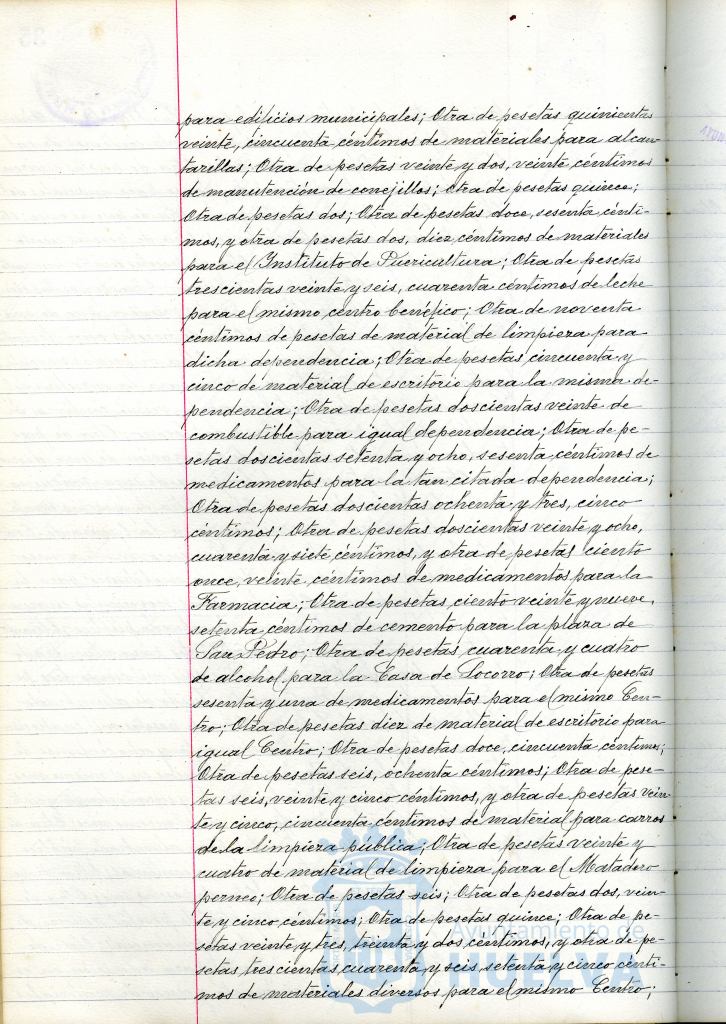 para edificios municipales; Otra de pesetas quinientas
veinte, cincuenta céntimos de materiales para alcan-
tarillas; Otra de pesetas veinte y dos, veinte céntimos
de manutención de conejillos; Otra de pesetas quince;
Otra de pesetas dos; Otra de pesetas doce, sesenta cénti-
mos, y otra de pesetas dos, diez céntimos de materiales
para el Instituto de Puericultura; Otra de pesetas
trescientas veinte y seis, cuarenta céntimos de leche
para el mismo centro benéfico; Otra de noventa
céntimos de pesetas de material de limpieza para
dicha dependencia; Otra de pesetas cincuenta y
cinco de material de escritorio para la misma de-
pendencia; Otra de pesetas doscientas veinte de
combustible para igual dependencia; Otra de pe-
setas doscientas setenta y ocho, sesenta céntimos de
medicamentos para la tan citada dependencia;
Otra de pesetas doscientas ochenta y tres, cinco
céntimos; Otra de pesetas doscientas veinte y ocho,
cuarenta y siete céntimos, y otra de pesetas ciento
once, veinte céntimos de medicamentos para la
Farmacia; Otra de pesetas ciento veinte y nueve,
setenta céntimos de cemento para la plaza de
San Pedro; Otra de pesetas cuarenta y cuatro
de alcohol para la Casa de Socorro; Otra de pesetas
sesenta y una de medicamentos para el mismo Cen-
tro; Otra de pesetas diez de material de escritorio para
igual Centro; Otra de pesetas doce, cincuenta céntimos;
Otra de pesetas seis, ochenta céntimos; Otra de pese-
tas seis, veinte y cinco céntimos, y otra de pesetas vein-
te y cinco, cincuenta céntimos de material para carros
de la limpieza pública; Otra de pesetas veinte y
cuatro de material de limpieza para el Matadero
porneo; Otra de pesetas seis; Otra de pesetas dos, vein-
te y cinco céntimos; Otra de pesetas quince; Otra de pe-
setas veinte y tres, treinta y dos céntimos, y otra de pe-
setas trescientas cuarenta y seis setenta y cinco cénti-
mos de materiales diversos para el mismo Centro;
Ayuntamiento de
HUELVA